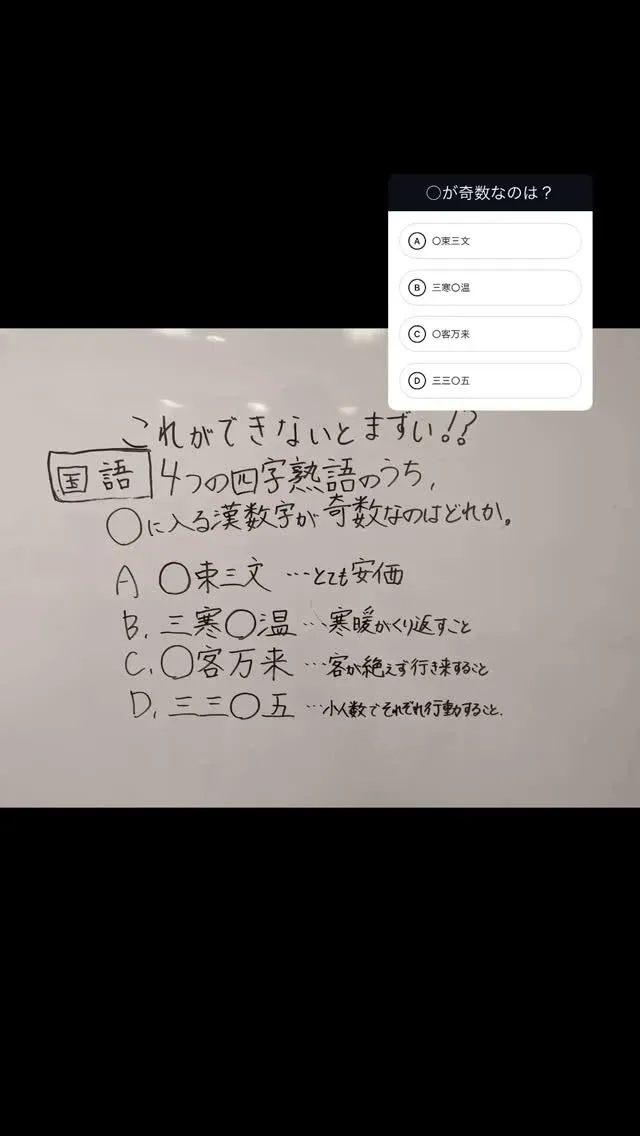 ○が奇数なのは？
A ○束三文
B 三寒○温
C ○客万来
D 三三○五
これができないとまずい!?
国語 4つの四字熟語のうち,
○に入る漢数字が奇数なのはどれか。
A ○束三文 …とても安価
B. 三寒○温 …寒暖がくり返すこと
C. ○客万来 …客が絶えず行き来すること
D. 三三○五 …小人数でそれぞれ行動すること.